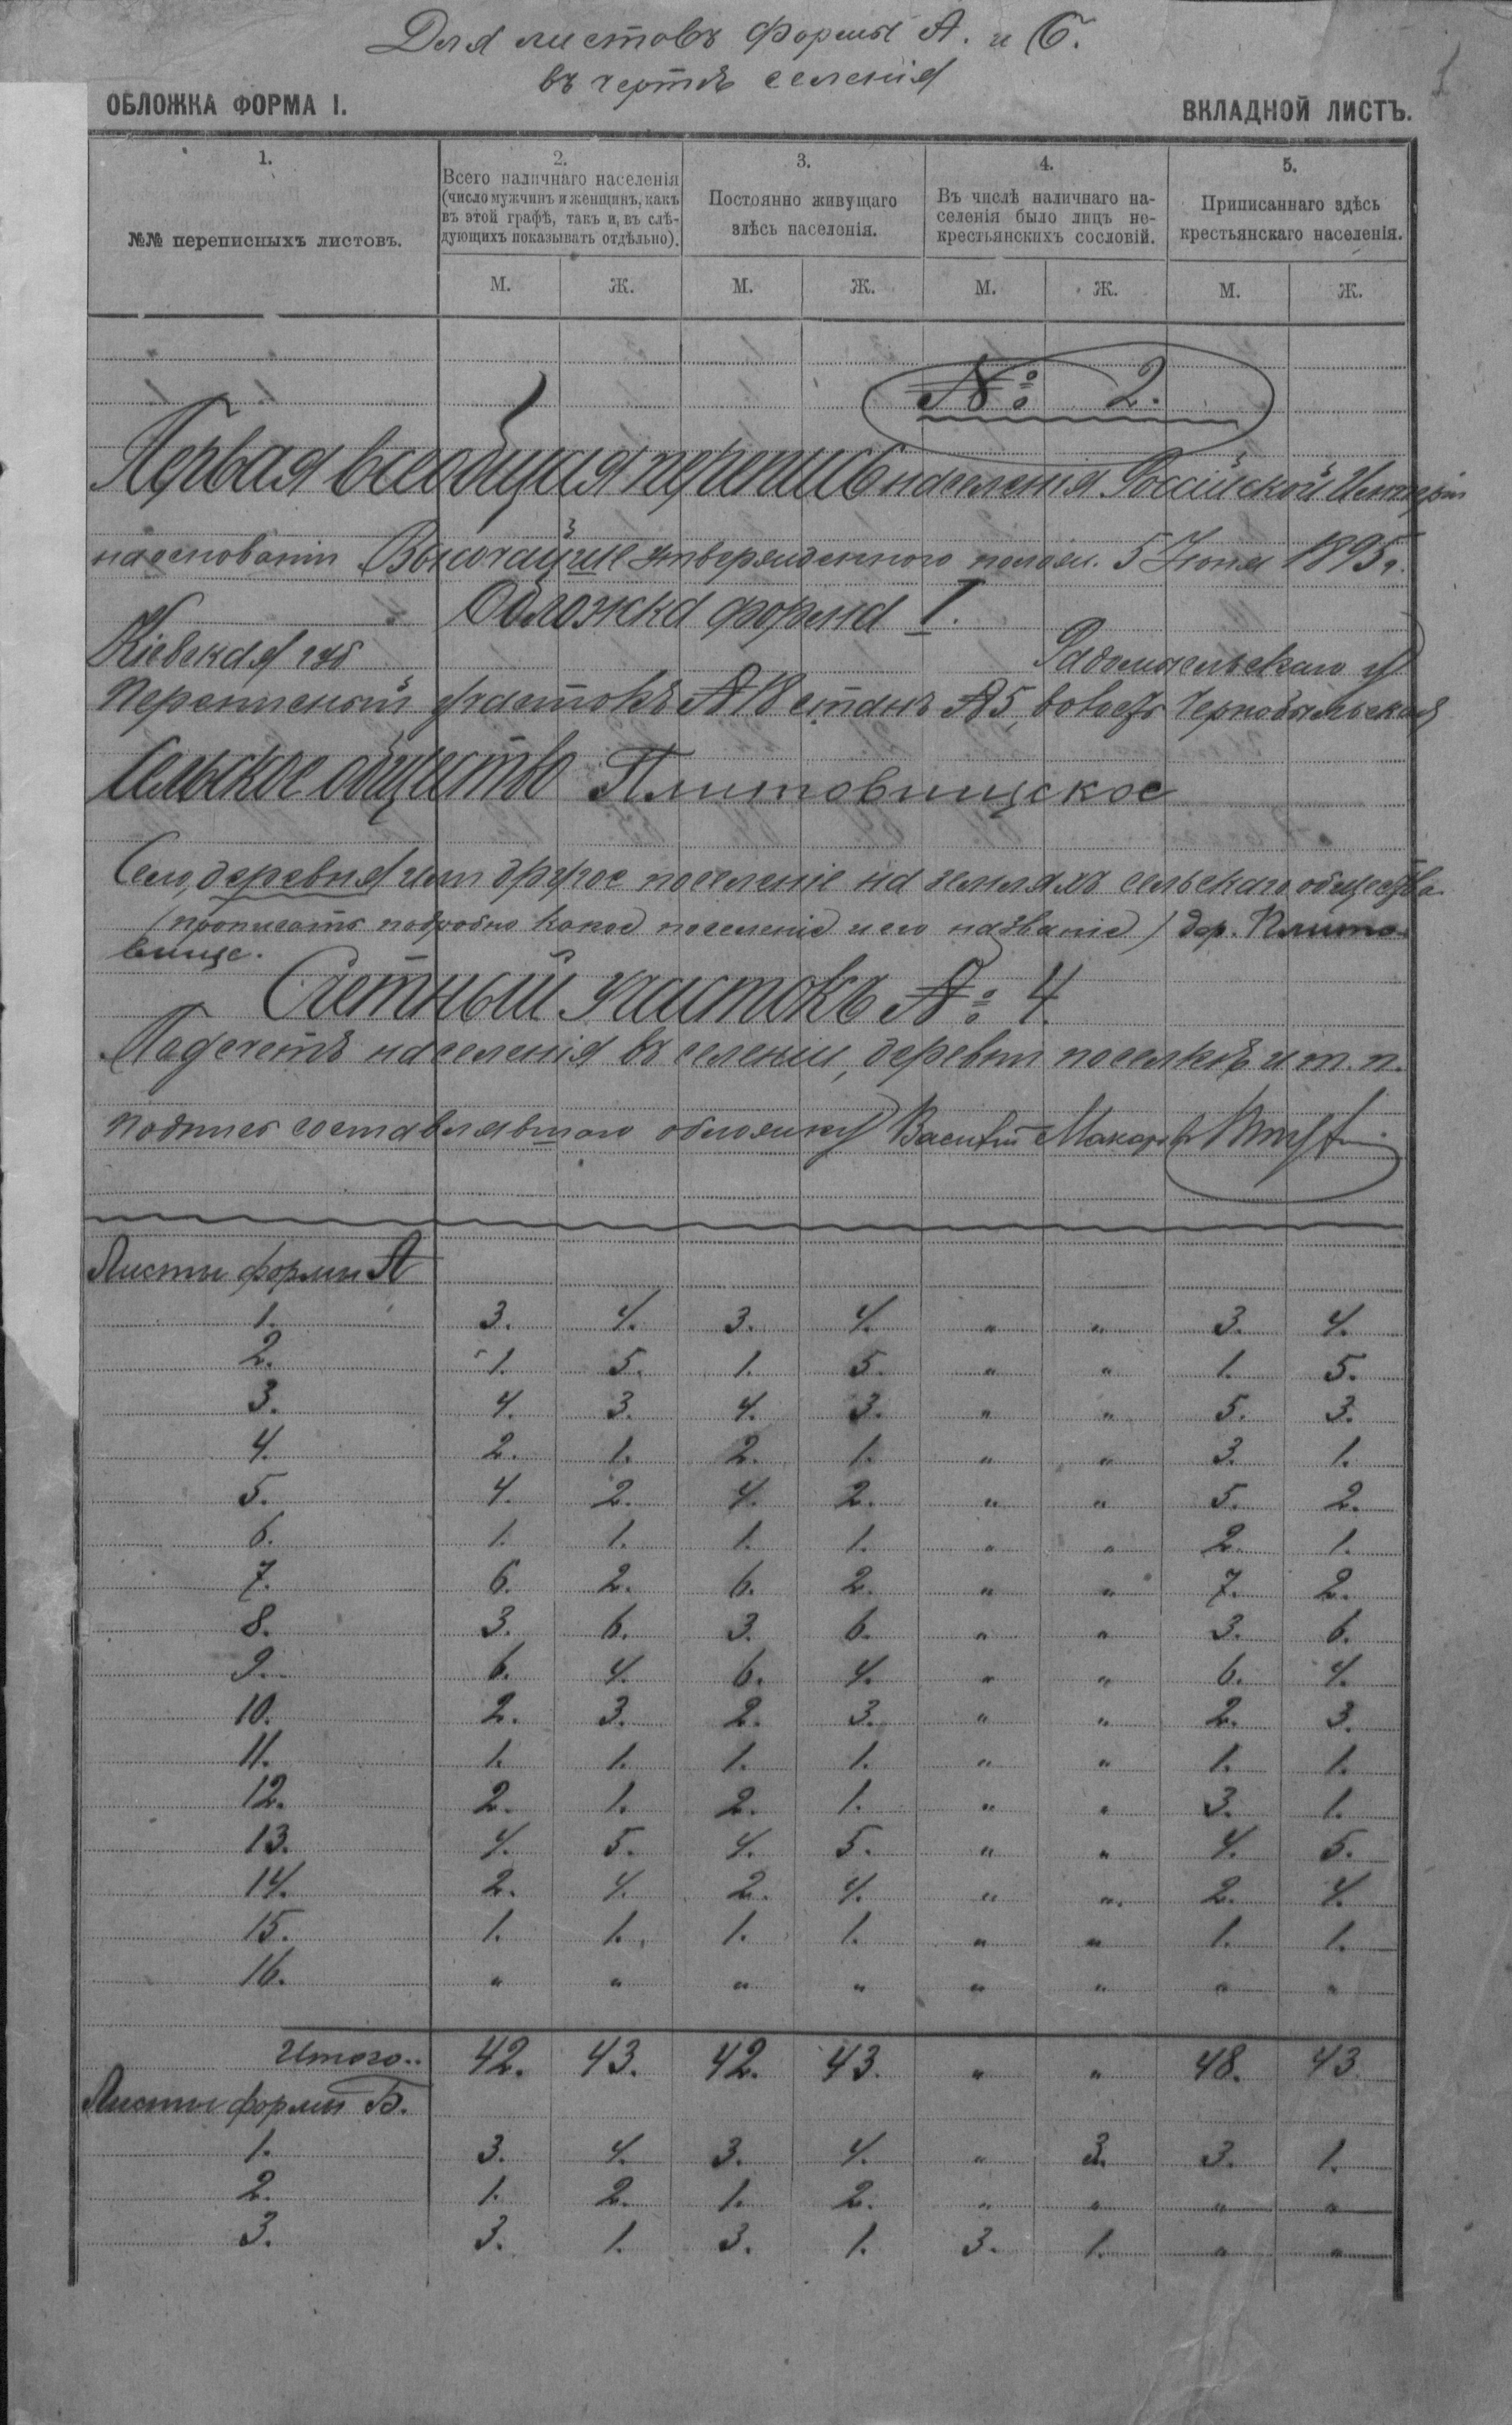 Для листовъ формы А. и Б.
въ чертѣ селенія
1
ОБЛОЖКА ФОРМА I.
ВКЛАДНОЙ ЛИСТЪ.
1. 2. 3. 4. 5.
№№ переписныхъ листовъ.
Всего наличнаго населенія
(число мужчинъ и женщинъ, какъ
въ этой графѣ, такъ и, въ слѣ-
дующихъ показывать отдѣльно).
Постоянно живущаго
здѣсь населенія.
Въ числѣ наличнаго на-
селенія было лицъ не-
крестьянскихъ сословій.
Приписаннаго здѣсь
крестьянскаго населенія.
М. Ж. М. Ж. М. Ж. М. Ж.
№ 2.
Первая всеобщая перепись населенія Россійской Имперіи
на основаніи Высочайше утвержденного полож. 5 Іюня 1895 г.
Обложка форма I.
Кіевская губ Радомысльскаго у
Переписный участокъ № станъ № 5, волость Чернобыльская
Сельское общество Плитовищское
Село, деревня или другое поселеніе на земляхъ сельскаго общества
(прописать подробно какое поселеніе и его названіе) дер. Плито-
вище.
Счетный участокъ № 4.
Подсчетъ населенія въ селеніи, деревни поселкѣ и т. п.
Подпись составлявшаго обложку Василій Макаров
Листы формы А
1. 3. 4. 3. 4. „ „ 3. 4.
2. 1. 5. 1. 5. „ „ 1. 5.
3. 4. 3. 4. 3. „ „ 5. 3.
4. 2. 1. 2. 1. „ „ 3. 1.
5. 4. 2. 4. 2. „ „ 5. 2.
6. 1. 1. 1. 1. „ „ 2. 1.
7. 6. 2. 6. 2. „ „ 7. 2.
8. 3. 6. 3. 6. „ „ 3. 6.
9. 6. 4. 6. 4. „ „ 6. 4.
10. 2. 3. 2. 3. „ „ 2. 3.
11. 1. 1. 1. 1. „ „ 1. 1.
12. 2. 1. 2. 1. „ „ 3. 1.
13. 4. 5. 4. 5. „ „ 4. 5.
14. 2. 4. 2. 4. „ „ 2. 4.
15. 1. 1. 1. 1. „ „ 1. 1.
16. „ „ „ „ „ „ „ „
Итого.. 42. 43. 42. 43. „ „ 48. 43
Листы формы Б.
1. 3. 4. 3. 4. „ 3. 3. 1.
2. 1. 2. 1. 2. „ „ „ „
3. 3. 1. 3. 1. 3. 1. „ „